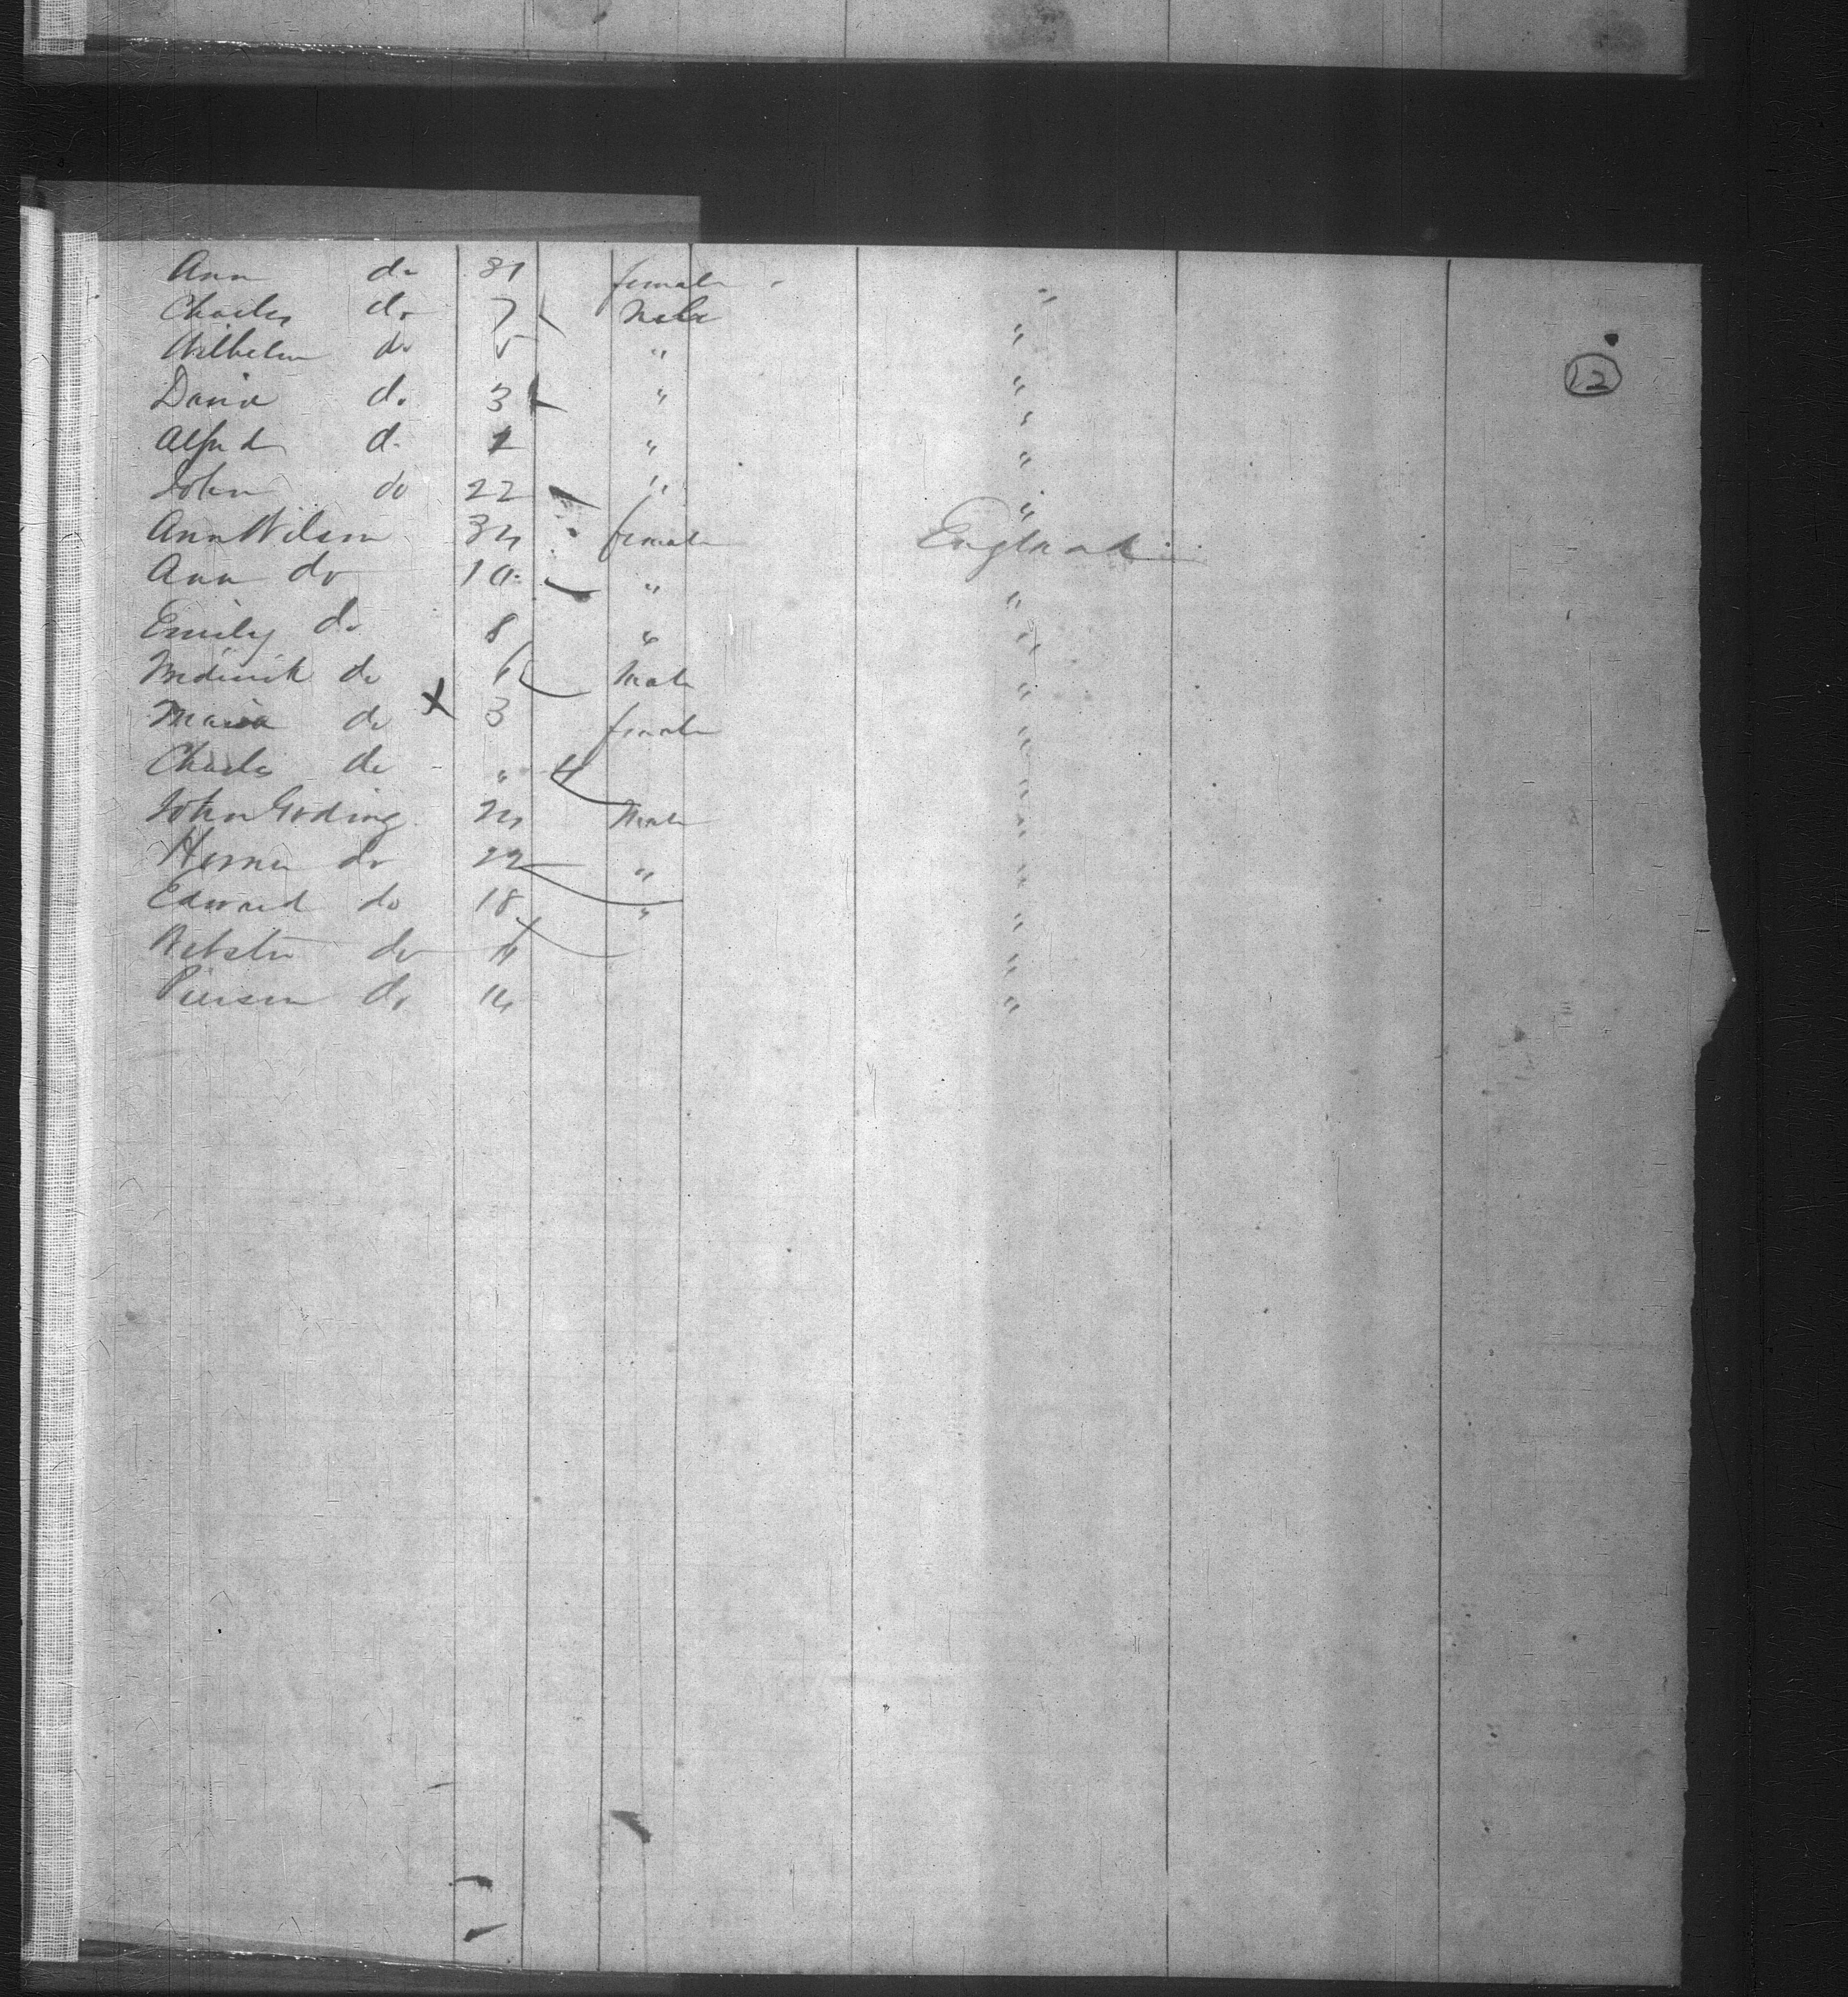 Ann do 31 female "
Charles do 7 Male "
Wilhelm do 5 " "
David do 3 " "
Alfred do 1 " "
John do 22 " "
Ann Wilson 34 female England
Ann do 10 " "
Emily do 8 " "
Frederick do 6 Male "
Maria do 3 female "
Charles do " "
John Goding 24 Male "
do 22 " "
Edward do 18 " "
do "
Pierson do 14 "
12